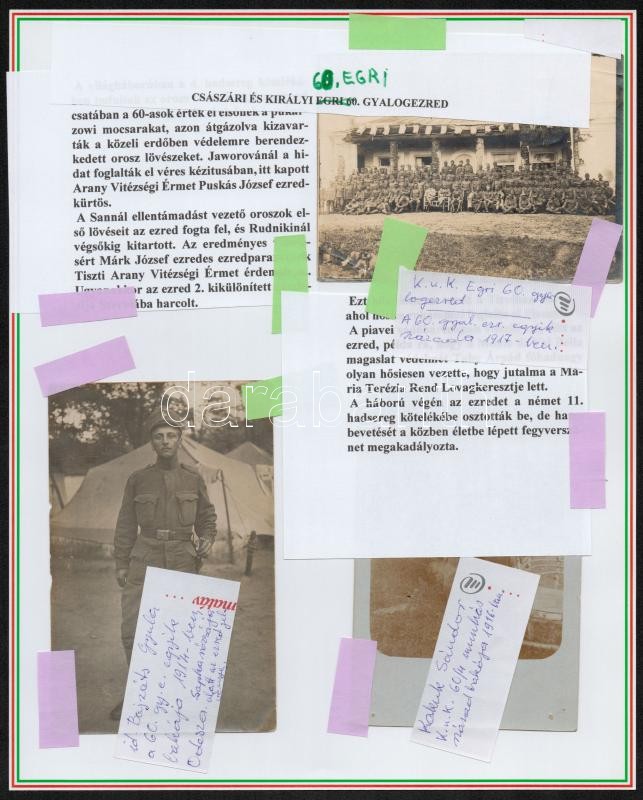 60. EGRI
CSÁSZÁRI ÉS KIRÁLYI EGRI 60. GYALOGEZRED
csatában a 60-asok érték el elsőnek a
zowi mocsarakat, azon átgázolva kizavar-
ták a közeli erdőben védelemre berendez-
kedett orosz lövészeket. Jaworovánál a hi-
dat foglalták el véres kézitusában, itt kapott
Arany Vitézségi Érmet Puskás József ezred-
kürtös.
A Sannál ellentámadást vezető oroszok el-
ső lövéseit az ezred fogta fel, és Rudnikinál
végsőkig kitartott. Az eredményes
sért Márk József ezredes ezredpara
Tiszti Arany Vitézségi Érmet érdem
az ezred 2. kikülönített
ba harcolt.
K.u.K. Egri 60. gya-
logezred
A 60. gyal. ezr. egyik
százada 1917-ben.
Ezt
ahol
A piavei
ezred,
magaslat
olyan hősiesen vezette, hogy jutalma a Ma-
ria Terézia Rend Lovagkeresztje lett.
A háború végén az ezredet a német 11.
hadsereg kötelékébe osztották be, de ha
bevetését a közben életbe lépett fegyversz
net megakadályozta.
darabanth
matáv
id. Bajzáth Gyula
a 60. gy. e. egyik
bakája 1914-ben
Kakuk Sándor
K.u.K. 60/4 munkás
század bakája 1916-ban.